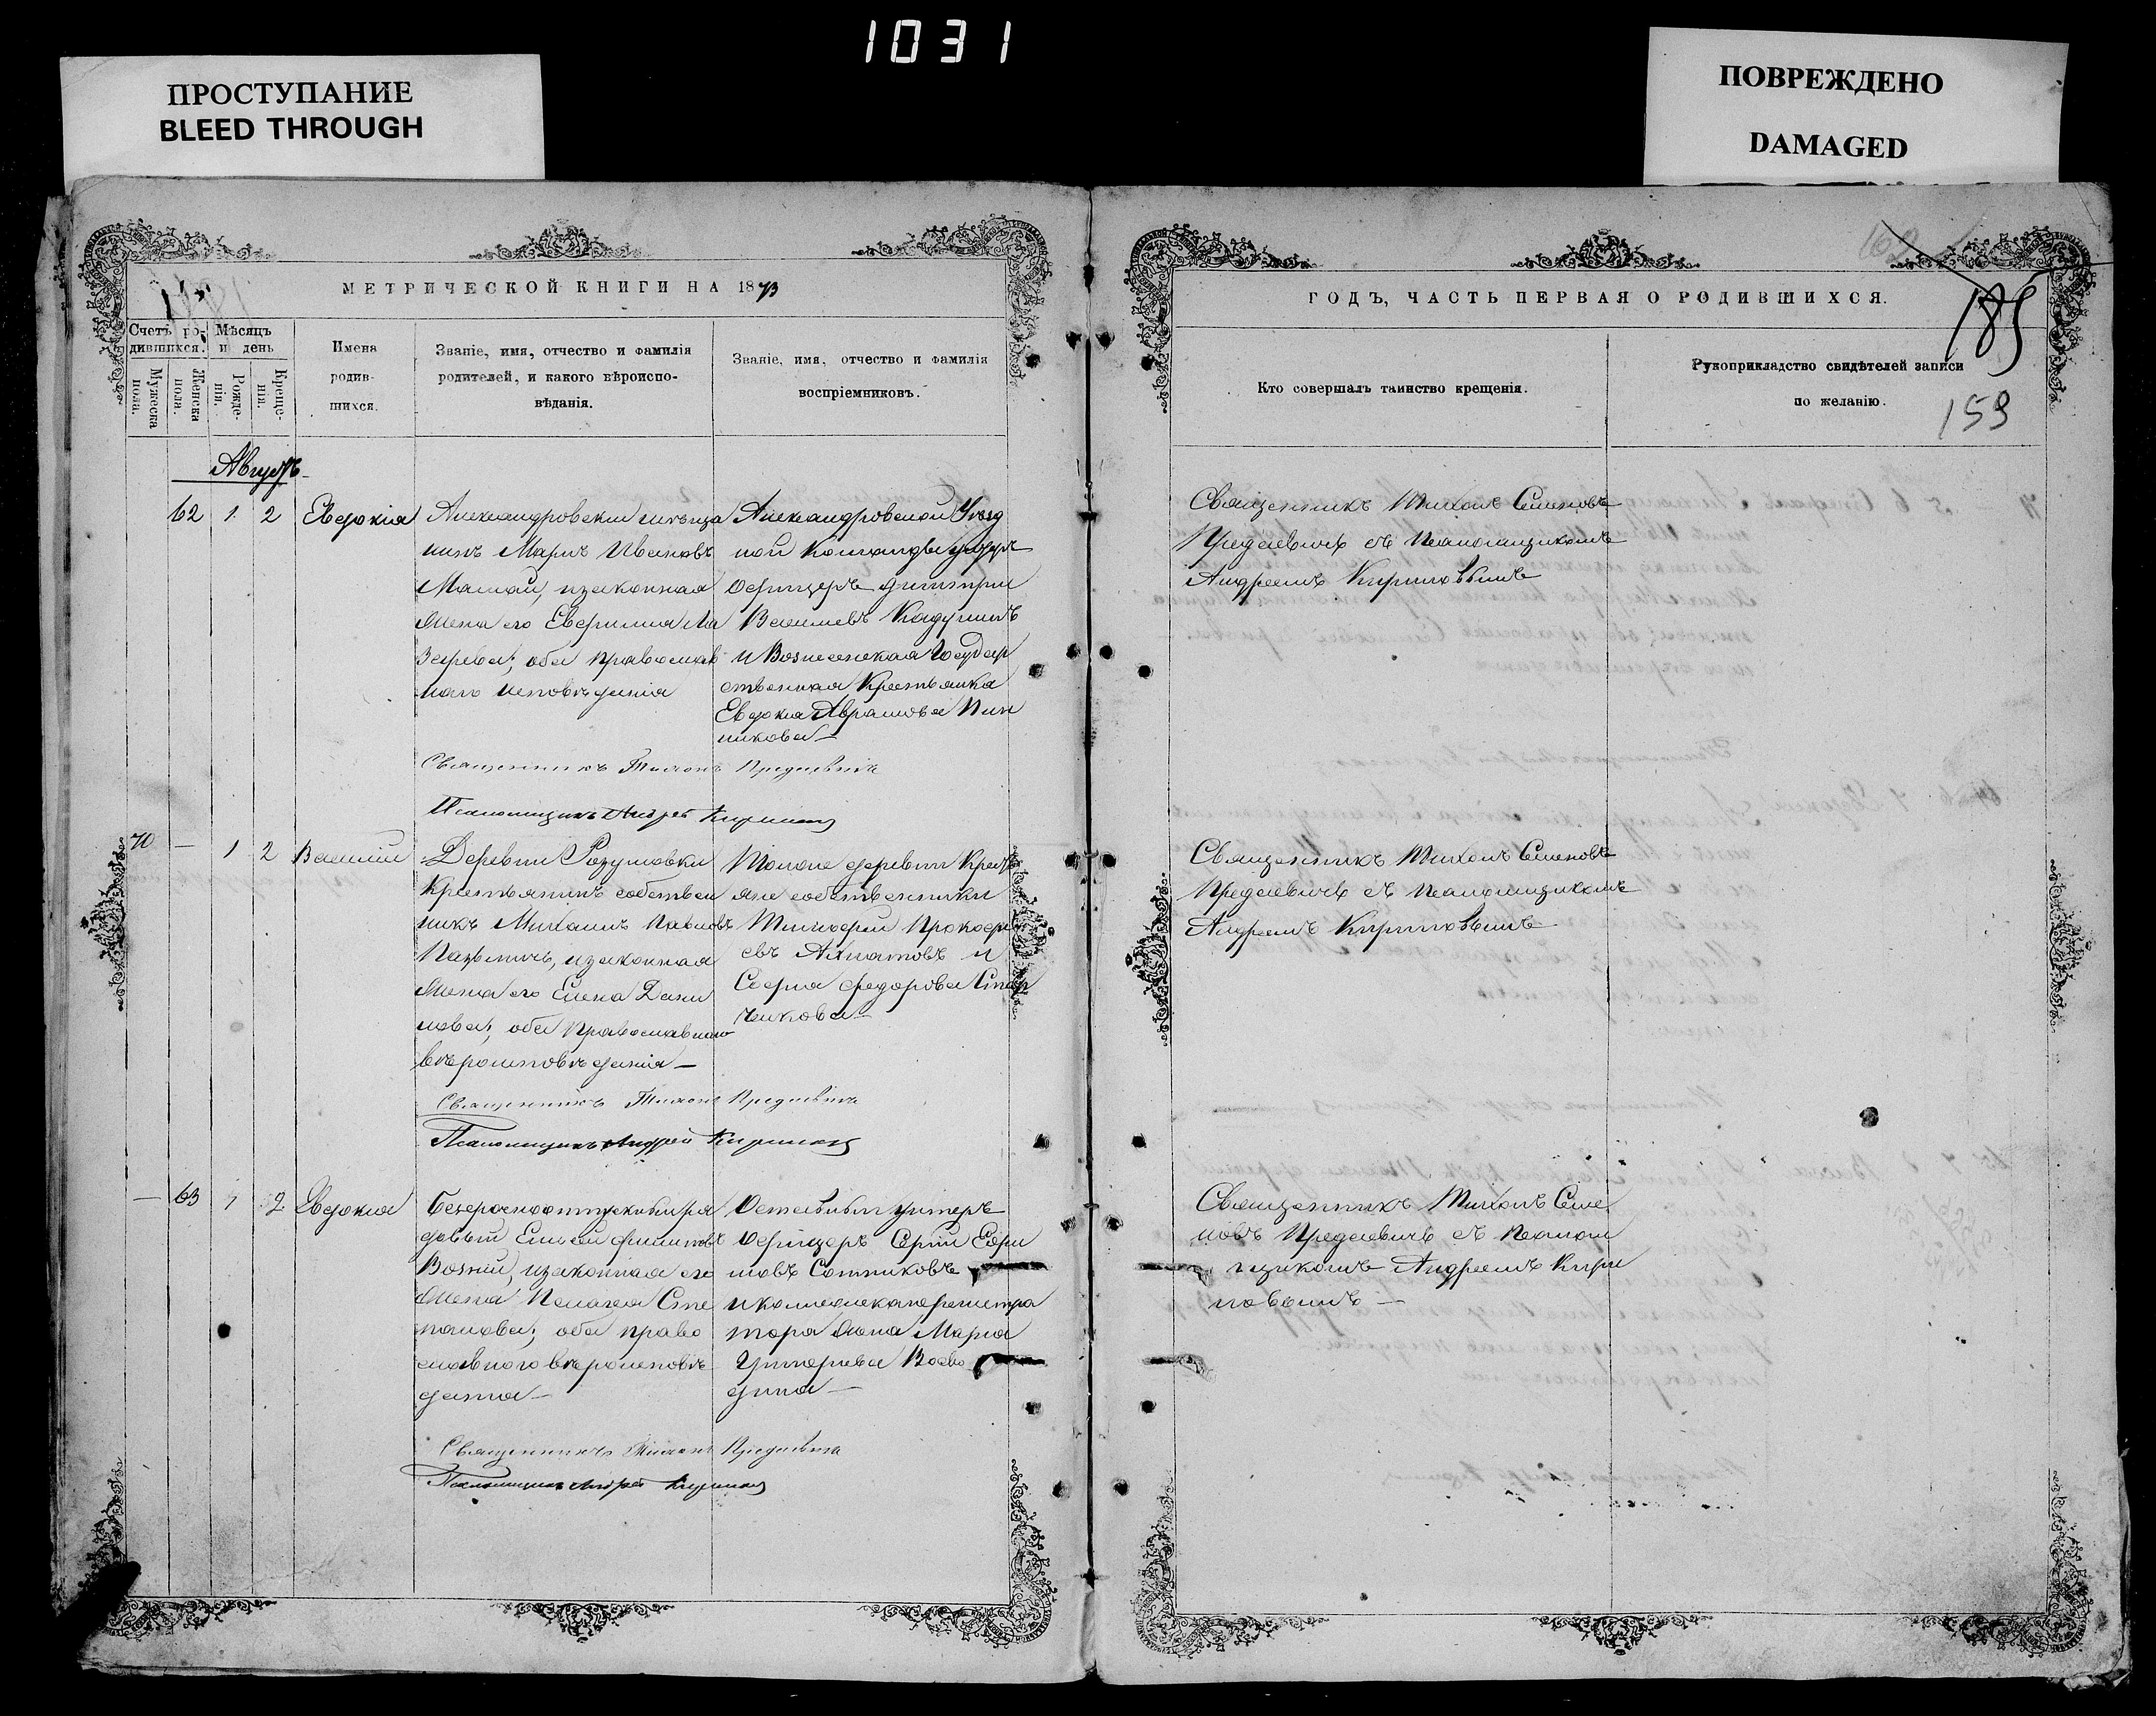 1031
ПРОСТУПАНИЕ
BLEED THROUGH
ПОВРЕЖДЕНО
DAMAGED
МЕТРИЧЕСКОЙ КНИГИ НА 1873
Счетъ ро-
дившихся.
Мужеска
пола.
Женска
пола.
Мѣсяцъ
и день
Рожде-
нія.
Креще-
нія.
Имена
родив-
шихся.
Званіе, имя, отчество и фамилія
родителей, и какого вѣроиспо-
вѣданія.
Званіе, имя, отчество и фамилія
воспріемниковъ.
Августъ
62 1 2 Евдокія
Александровский мѣща
нинъ Иванов
законная
жена его Евфимия Ла
зарева; оба православ
наго исповѣданія
Александровской Уѣзд
ной Команды унтеръ
Офицеръ Димитрий
Васильевъ
и Вознесенская Государ
ственная Крестьянка
Евдокия Аврамова
никова
Священникъ Тихонъ
Псаломщикъ Андрей
70 — 1 2 Василий
Деревни Розумовки
Крестьянинъ собствен
никъ Михаилъ Павловъ
изаконная
жена его Елена Дани
лова; оба Православнаго
вѣроисповѣданія —
Тойже деревни Крестъ
яне собственники
Тимофей Прокофи
евъ и
София Федорова
ченкова —
Священникъ Тихонъ
Псаломщикъ Андрей
— 63 1 2 Евдокия
Безсрочноотпускный ря
довый Филиповъ
Возний, изаконная его
жена Пелагея Сте
панова; оба право
славного вѣроисповѣ
дания —
Отставный унтеръ
Офицеръ Сергий Ефи
мовъ Сотниковъ
регистра
тора жена Мария
Григориева Воево
дина —
Священникъ Тихонъ
Псаломщикъ Андрей
ГОДЪ, ЧАСТЬ ПЕРВАЯ О РОДИВШИХСЯ.
162
185
159
Кто совершалъ таинство крещенія.
Рукоприкладство свидѣтелей записи
по желанію.
Священникъ Тихонъ Семеновъ
съ Псаломщикомъ
Андреемъ Кириловымъ
Священникъ Тихонъ Семеновъ
съ Псаломщикомъ
Андреемъ Кириловымъ
Священникъ Тихонъ Семе
новъ съ Псалом
щикомъ Андреемъ Кири
ловымъ —